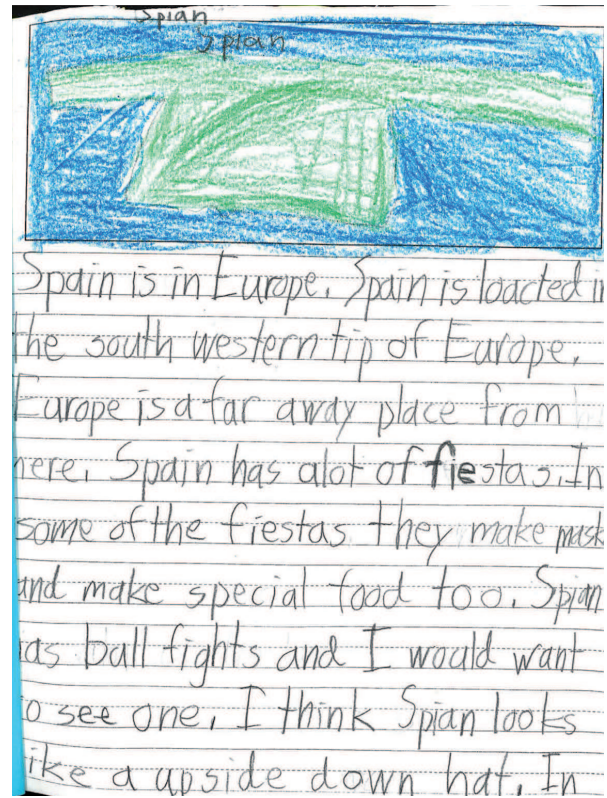 Spian
Spian
Spain is in Europe. Spain is loacted in
the south western tip of Europe.
Europe is a far away place from
here. Spain has alot of fiestas. In
some of the fiestas they make mask
and make special food too. Spian
has ball fights and I would want
to see one. I think Spian looks
like a upside down hat. In